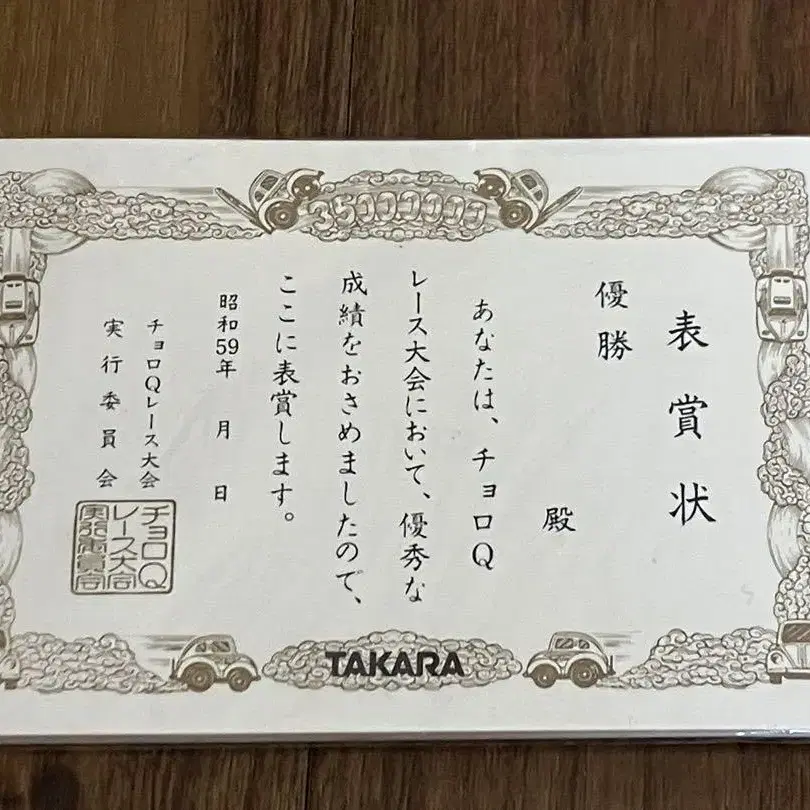 35000000
表賞状
優勝
殿
あなたは、チョロQ
レース大会において、優秀な
成績をおさめましたので、
ここに表賞します。
昭和59年　月　日
チョロQレース大会
実行委員会
チョロQ
レース大会
実行委員会
TAKARA